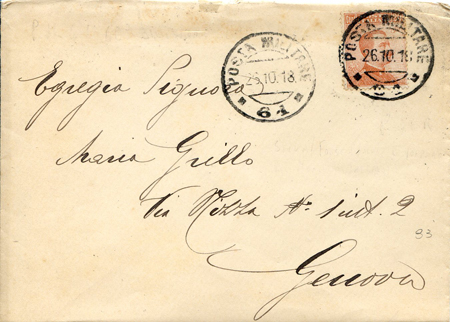 POSTA MILITARE
26.10.18
61
POSTA MILITARE
26.10.18
61
Egregia Signora
Maria Grillo
Via Nizza N° 1 int. 2
93
Genova